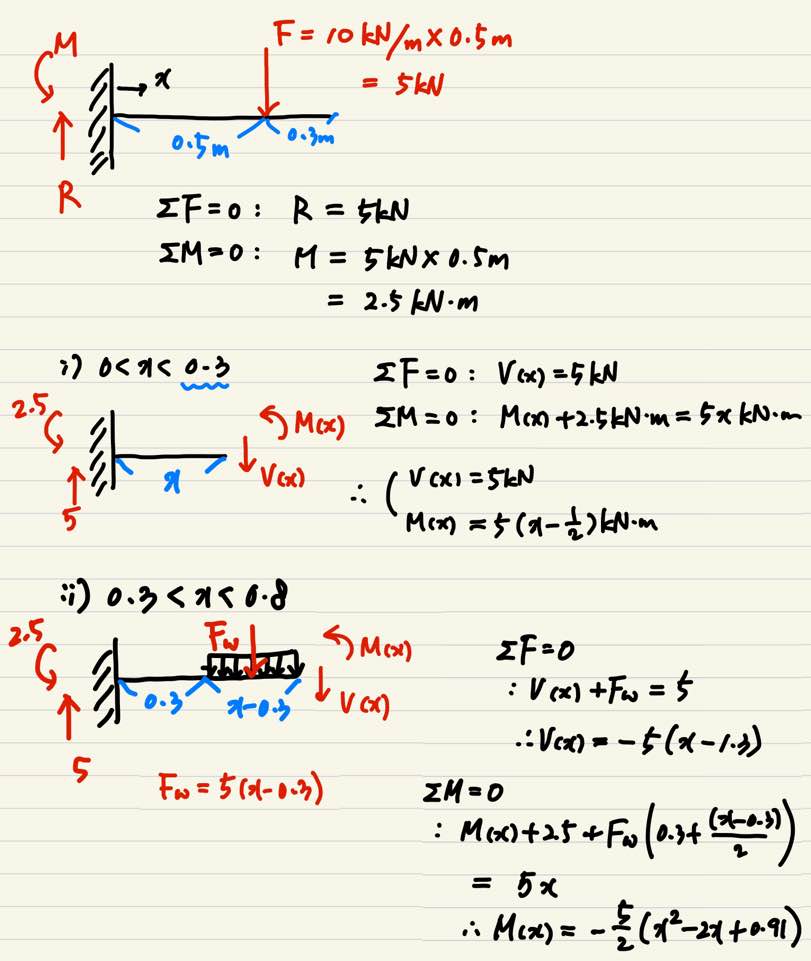 M
F = 10 kN/m × 0.5m
= 5kN
x
0.5m
0.3m
R
ΣF=0 : R = 5kN
ΣM=0 : M = 5kN × 0.5m
= 2.5 kN·m
i) 0<x<0.3
ΣF=0 : V(x)=5kN
2.5
M(x)
ΣM=0 : M(x)+2.5kN·m=5x kN·m
V(x)
x
5
∴ ( V(x)=5kN
M(x) = 5(x-1/2)kN·m
ii) 0.3<x<0.8
2.5
Fw
M(x)
V(x)
0.3
x-0.3
5
Fw = 5(x-0.3)
ΣF=0
: V(x)+Fw = 5
∴V(x) = -5(x-1.3)
ΣM=0
: M(x)+2.5+Fw(0.3+(x-0.3)/2)
= 5x
∴ M(x) = -5/2(x²-2x+0.91)